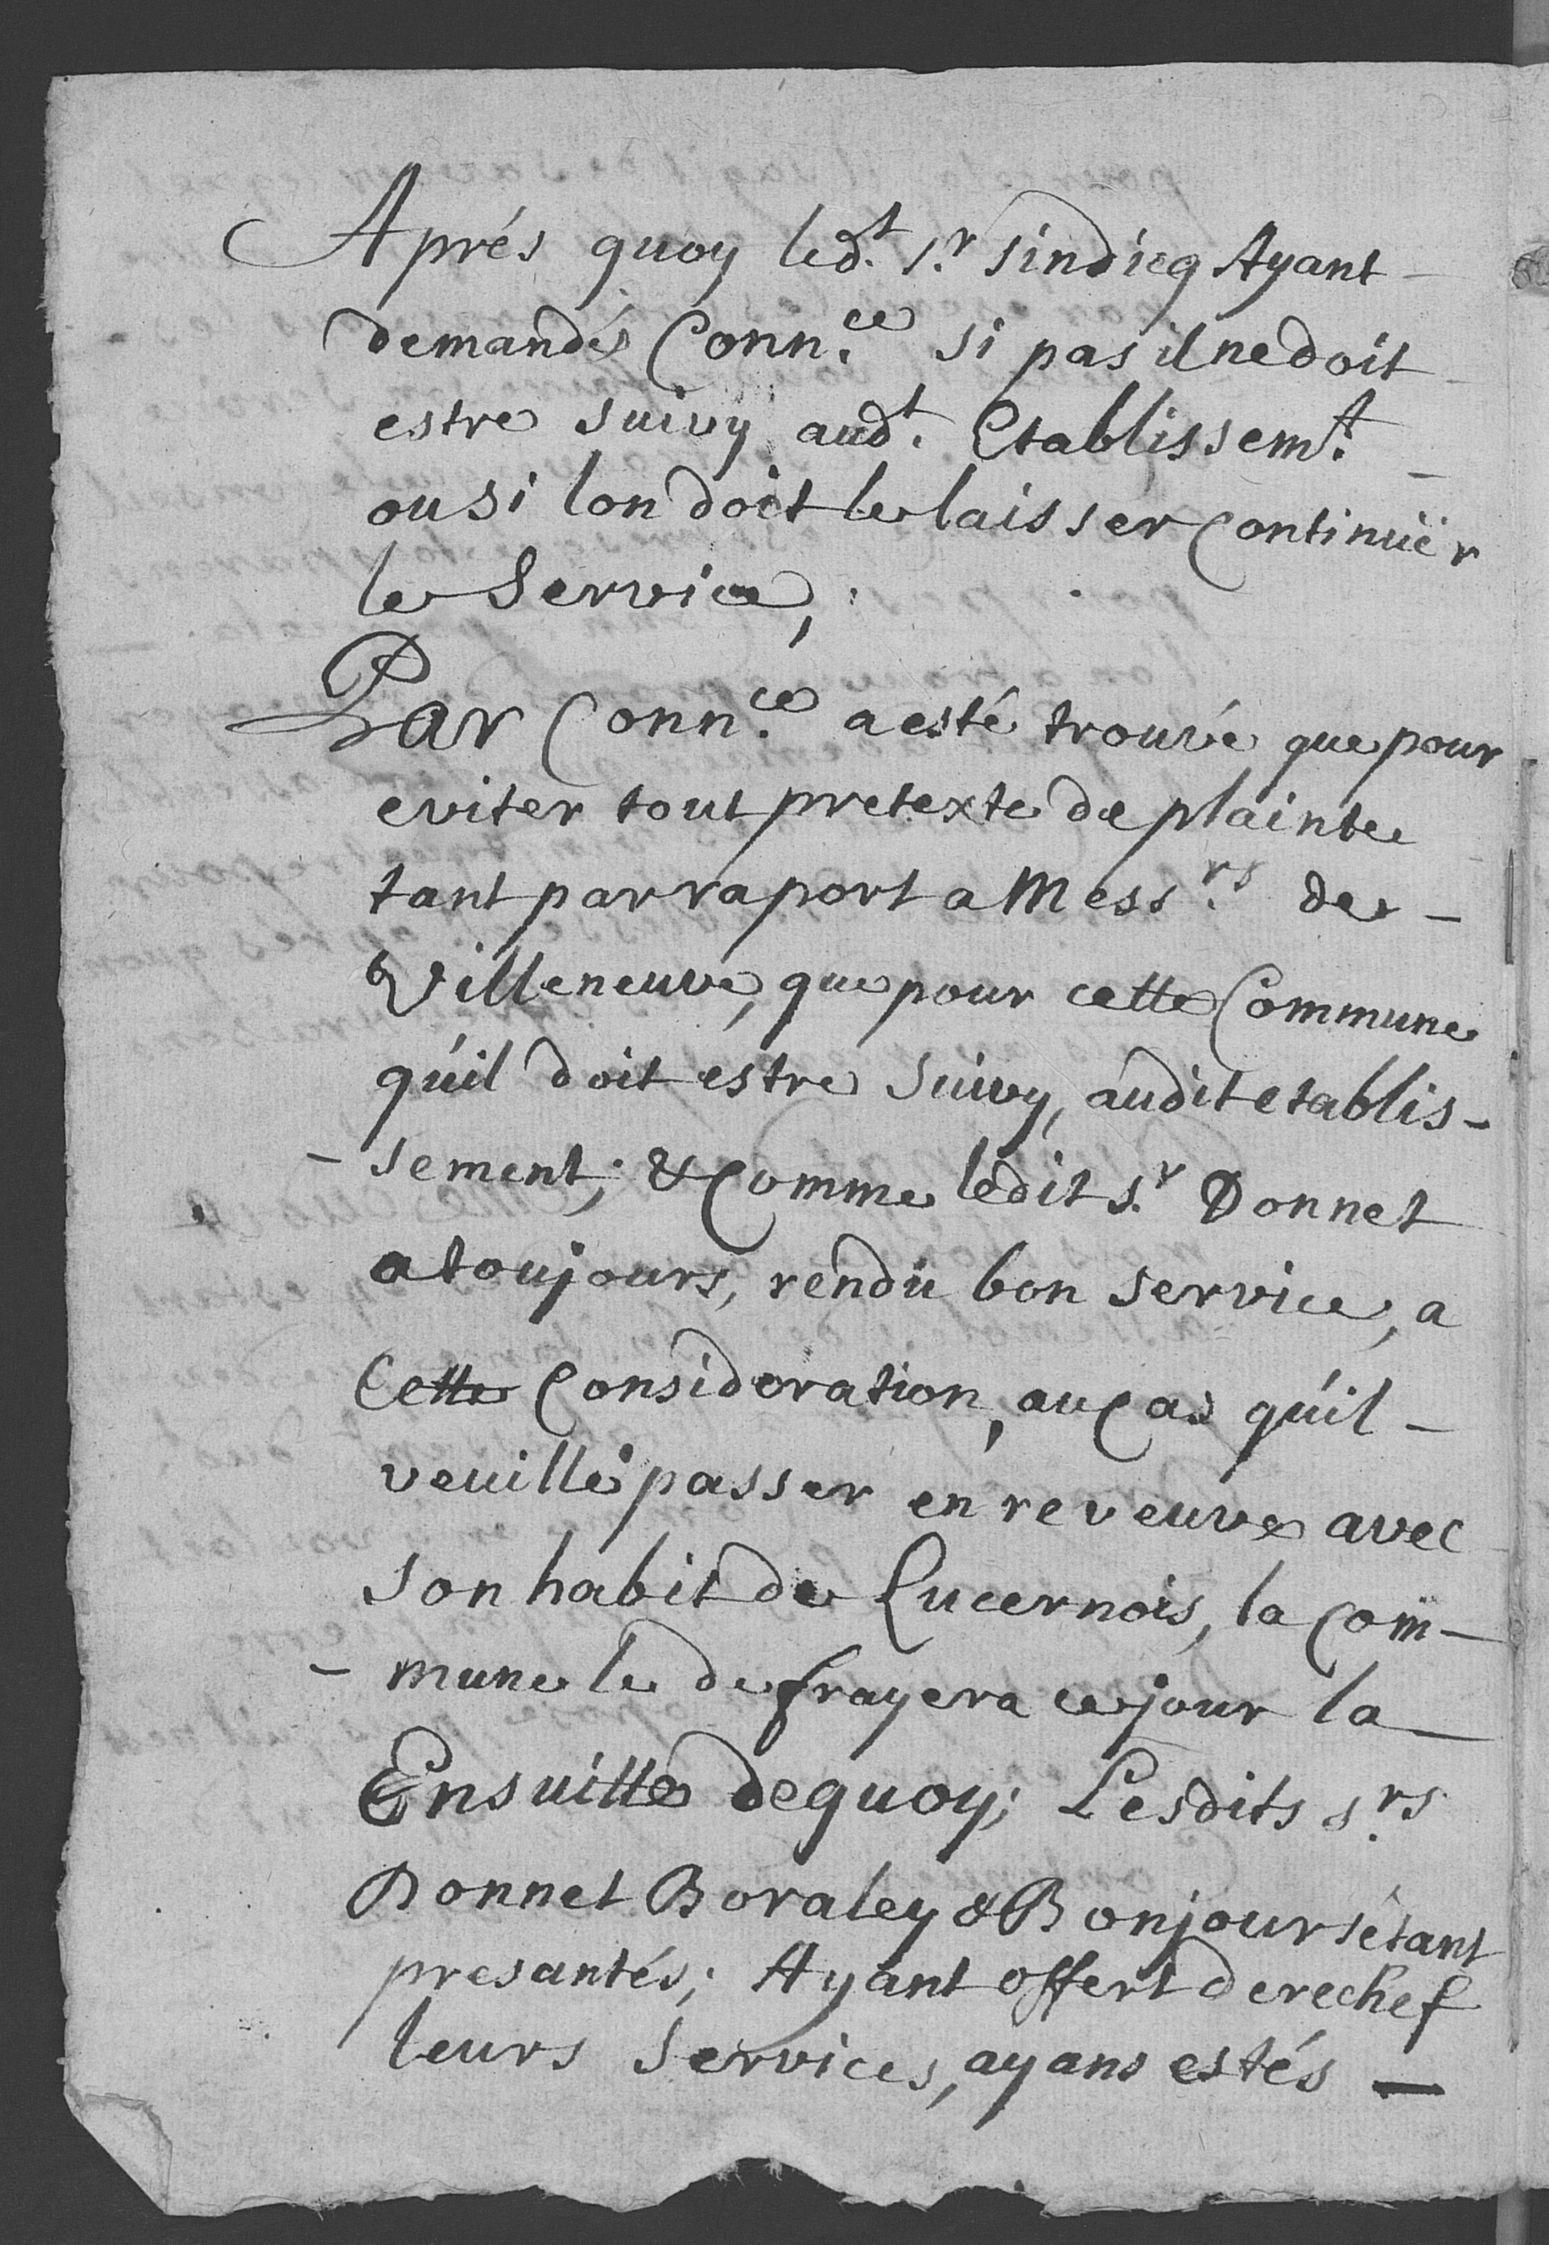 Aprés quoy led.t s.r sindicq Ayant
demandés Conn.ce si pas il ne doit
estre suivy aud.t Etablissem.t
ou si lon doit le laisser Continuër
le Service,
Par Conn.ce a esté trouvé que pour
eviter tout pretexte de plainte
tant par raport a Mess.rs de -
Villeneuve, que pour cette Commune
qu'il doit estre suivy, audit etablis-
- sement; & Comme ledit s.r Donnet
a toujours, rendu bon service, a
Cette Consideration, au Cas qu'il -
veuille passer en reveuve avec
son habit de Lucernois, la Com-
- mune le defrayera ce jour la
Ensuitte dequoy; Lesdits s.rs
Donnet Boraley & Bonjour s'étant
presantés; Ayant offert derechef
leurs Services, ayans estés -